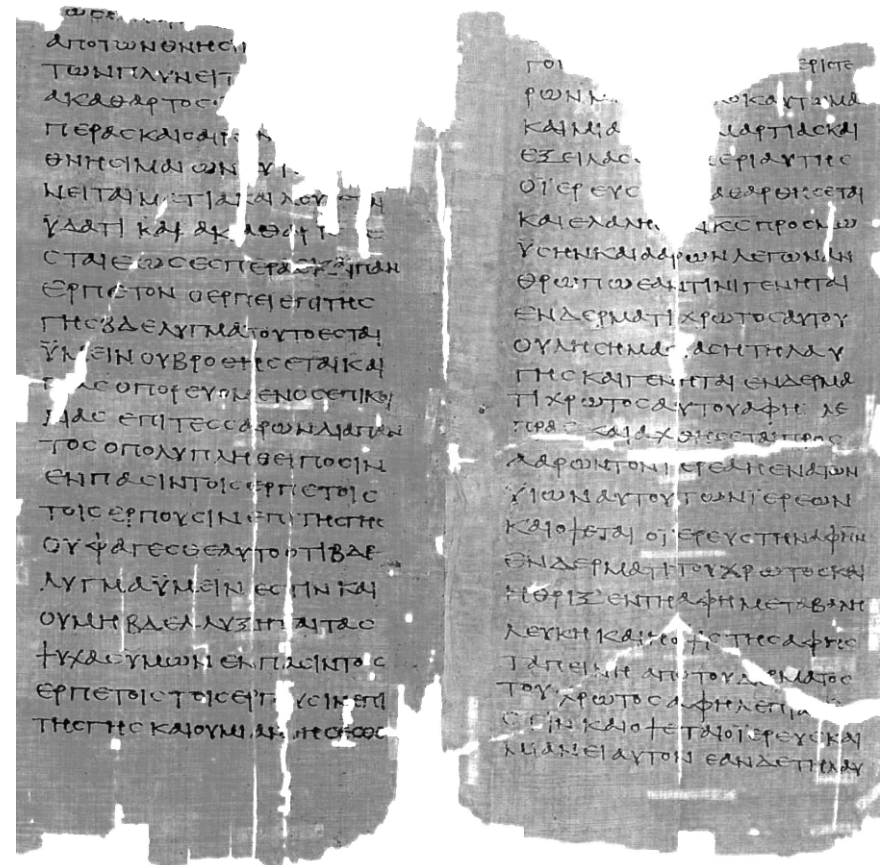 ΩCΕ
ΑΠΟΤΩΝΘΝΗCΙ
ΤΩΝΠΛΥΝΕΙΤ
ΑΚΑΘΑΡΤΟC
ΠΕΡΑCΚΑΙΟΑΙΡ Ν
ΘΝΗCΙΜΑΙΩΝ Υ
ΝΕΙΤΑΙΜΑΤΙΑΚΑΙΛΟΥ ΤΑΙ
ΫΔΑΤΙ ΚΑΙ ΑΚΑΘΑΡΤ Ε
CΤΑΙΕΩCΕCΠΕΡΑCΚΑΙΠΑΝ
ΕΡΠΕΤΟΝ ΟΕΡΠΕΙΕΠΙΤΗC
ΓΗCΒΔΕΛΥΓΜΑΤΟΥΤΟΕCΤΑΙ
ΫΜΕΙΝΟΥΒΡΟΘΗCΕΤΑΙΚΑΙ
ΑCΟΠΟΡΕΥΟΜΕΝΟCΕΠΙΚΟΙ
ΛΙΑCΕΠΙΤΕCCΑΡΩΝΔΙΑΠΑΝ
ΤΟCΟΠΟΛΥΠΛΗΘΕΙΠΟCΙΝ
ΕΝΠΑCΙΝΤΟΙCΕΡΠΕΤΟΙC
ΤΟΙCΕΡΠΟΥCΙΝΕΠΙΤΗCΓΗC
ΟΥΦΑΓΕCΘΕΑΥΤΟΟΤΙΒΔΕ
ΛΥΓΜΑΫΜΕΙΝΕCΤΙΝΚΑΙ
ΟΥΜΗΒΔΕΛΛΥΞΗΤΑΙΤΑC
ΨΥΧΑCΥΜΩΝΕΝΠΑCΙΝΤΟΙC
ΕΡΠΕΤΟΙCΤΟΙCΕΡΠ ΥCΙΝΕΠΙ
ΤΗCΓΗCΚΑΙΟΥΜΙΑΝ ΗCΕCΘΕ
ΓΟΙ ΕΡΙCΤΕ
ΡΩΝ ΟΚΑΥΤΩΜΑ
ΚΑΙΜΙΑ ΜΑΡΤΙΑCΚΑΙ
ΕΞΕΙΛΑC ΕΡΙΑΥΤΗC
ΟΪΕΡΕΥC ΑΘΑΡΘΗCΕΤΑΙ
ΚΑΙΕΛΑΛΗ ΚCΠΡΟCΜΩ
ΫCΗΝΚΑΙΑΑΡΩΝΛΕΓΩΝΑΝ
ΘΡΩΠΩΕΑΝΤΙΝΙΓΕΝΗΤΑΙ
ΕΝΔΕΡΜΑΤΙΧΡΩΤΟCΑΥΤΟΥ
ΟΥΛΗCΗΜΑ ΑCΗΤΗΛΑΥ
ΓΗCΚΑΙΓΕΝΗΤΑΙΕΝΔΕΡΜΑ
ΤΙΧΡΩΤΟCΑΥΤΟΥΑΦΗ ΛΕ
ΠΡΑCΚΑΙΑΧΘΗCΕΤΑΙΠΡΟC
ΑΑΡΩΝΤΟΝΙΕΡΕΑΗΕΝΑΤΩΝ
ΫΙΩΝΑΥΤΟΥΤΩΝΪΕΡΕΩΝ
ΚΑΙΟΨΕΤΑΙΟΪΕΡΕΥCΤΗΝΑΦΗΝ
ΕΝΔΕΡΜΑΤΙΤΟΥΧΡΩΤΟCΚΑΙ
ΗΘΡΙΞΕΝΤΗΑΦΗΜΕΤΑΒΑΛΗ
ΛΕΥΚΗΚΑΙΗΟΨΙCΤΗCΑΦΗC
ΤΑΠΕΙΝΗΑΠΟΤΟΥΔΕΡΜΑΤΟC
ΤΟΥ ΧΡΩΤΟCΑΦΗΛΕΠΡΑ
C ΙΝΚΑΙΟΨΕΤΑΙΟΪΕΡΕΥCΚΑΙ
ΜΙΑΝΕΙΑΥΤΟΝ ΕΑΝΔΕΤΗΛΑΥ